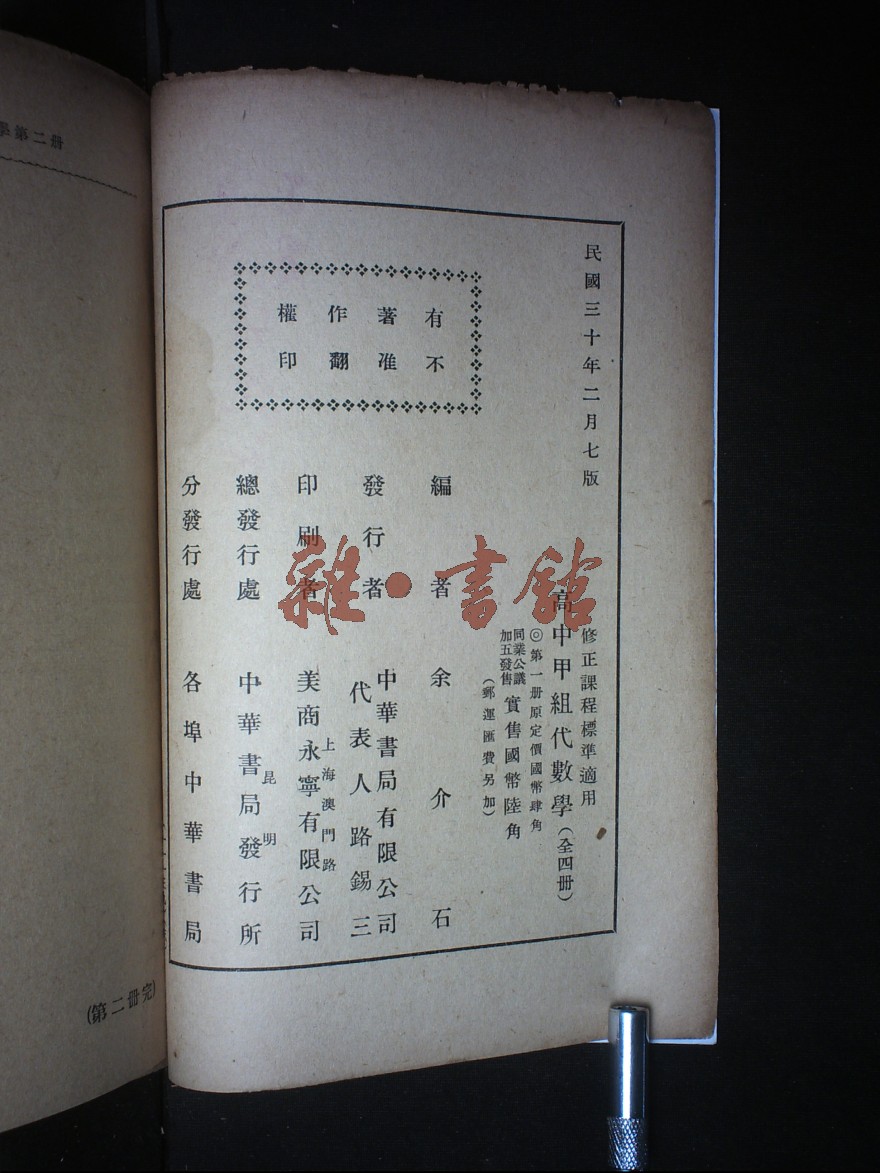 民國三十年二月七版
修正課程標準適用
高中甲組代數學(全四册)
◎第一册原定價國幣肆角
同業公議
加五發售
實售國幣陸角
(郵運匯費另加)
有著作權
不准翻印
編者 余介石
發行者 中華書局有限公司
代表人路錫三
印刷者 上海澳門路
美商永寧有限公司
總發行處 昆明
中華書局發行所
分發行處 各埠中華書局
雜·書館
學第二册
(第二册完)